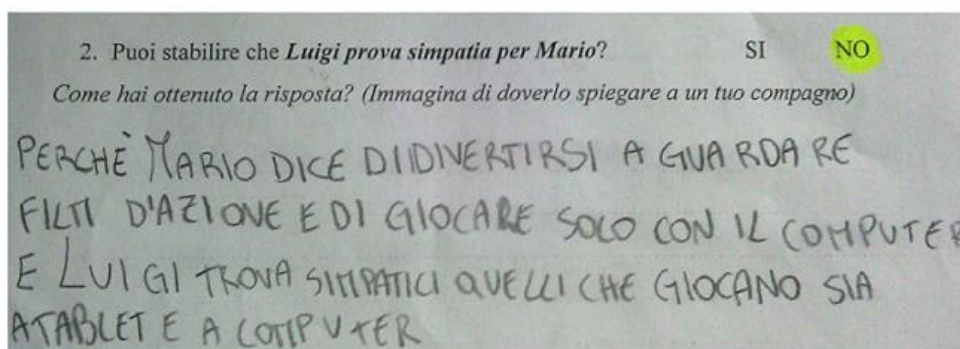 2. Puoi stabilire che Luigi prova simpatia per Mario? SI NO
Come hai ottenuto la risposta? (Immagina di doverlo spiegare a un tuo compagno)
PERCHÈ MARIO DICE DI DIVERTIRSI A GUARDARE
FILM D'AZIONE E DI GIOCARE SOLO CON IL COMPUTER
E LUIGI TROVA SIMPATICI QUELLI CHE GIOCANO SIA
A TABLET E A COMPUTER